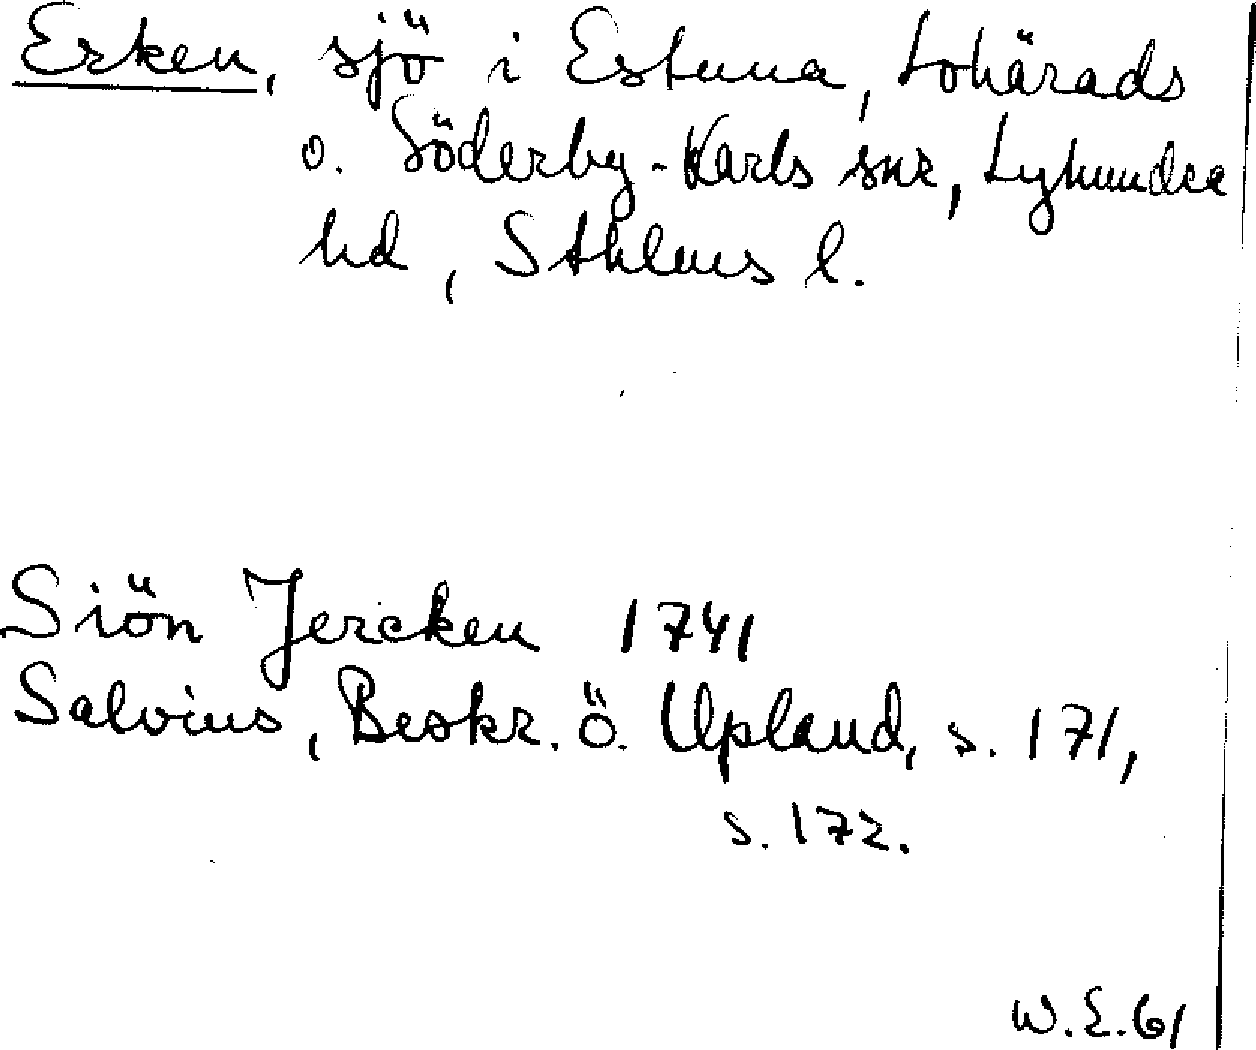 Erken, sjö i Estuna, Lohärads
o. Söderby-Karls snr, Lyhundra
hd, Sthlms l.
Siön Jercken 1741
Salvius, Beskr. Ö. Upland, s. 171,
s. 172.
W.E.61